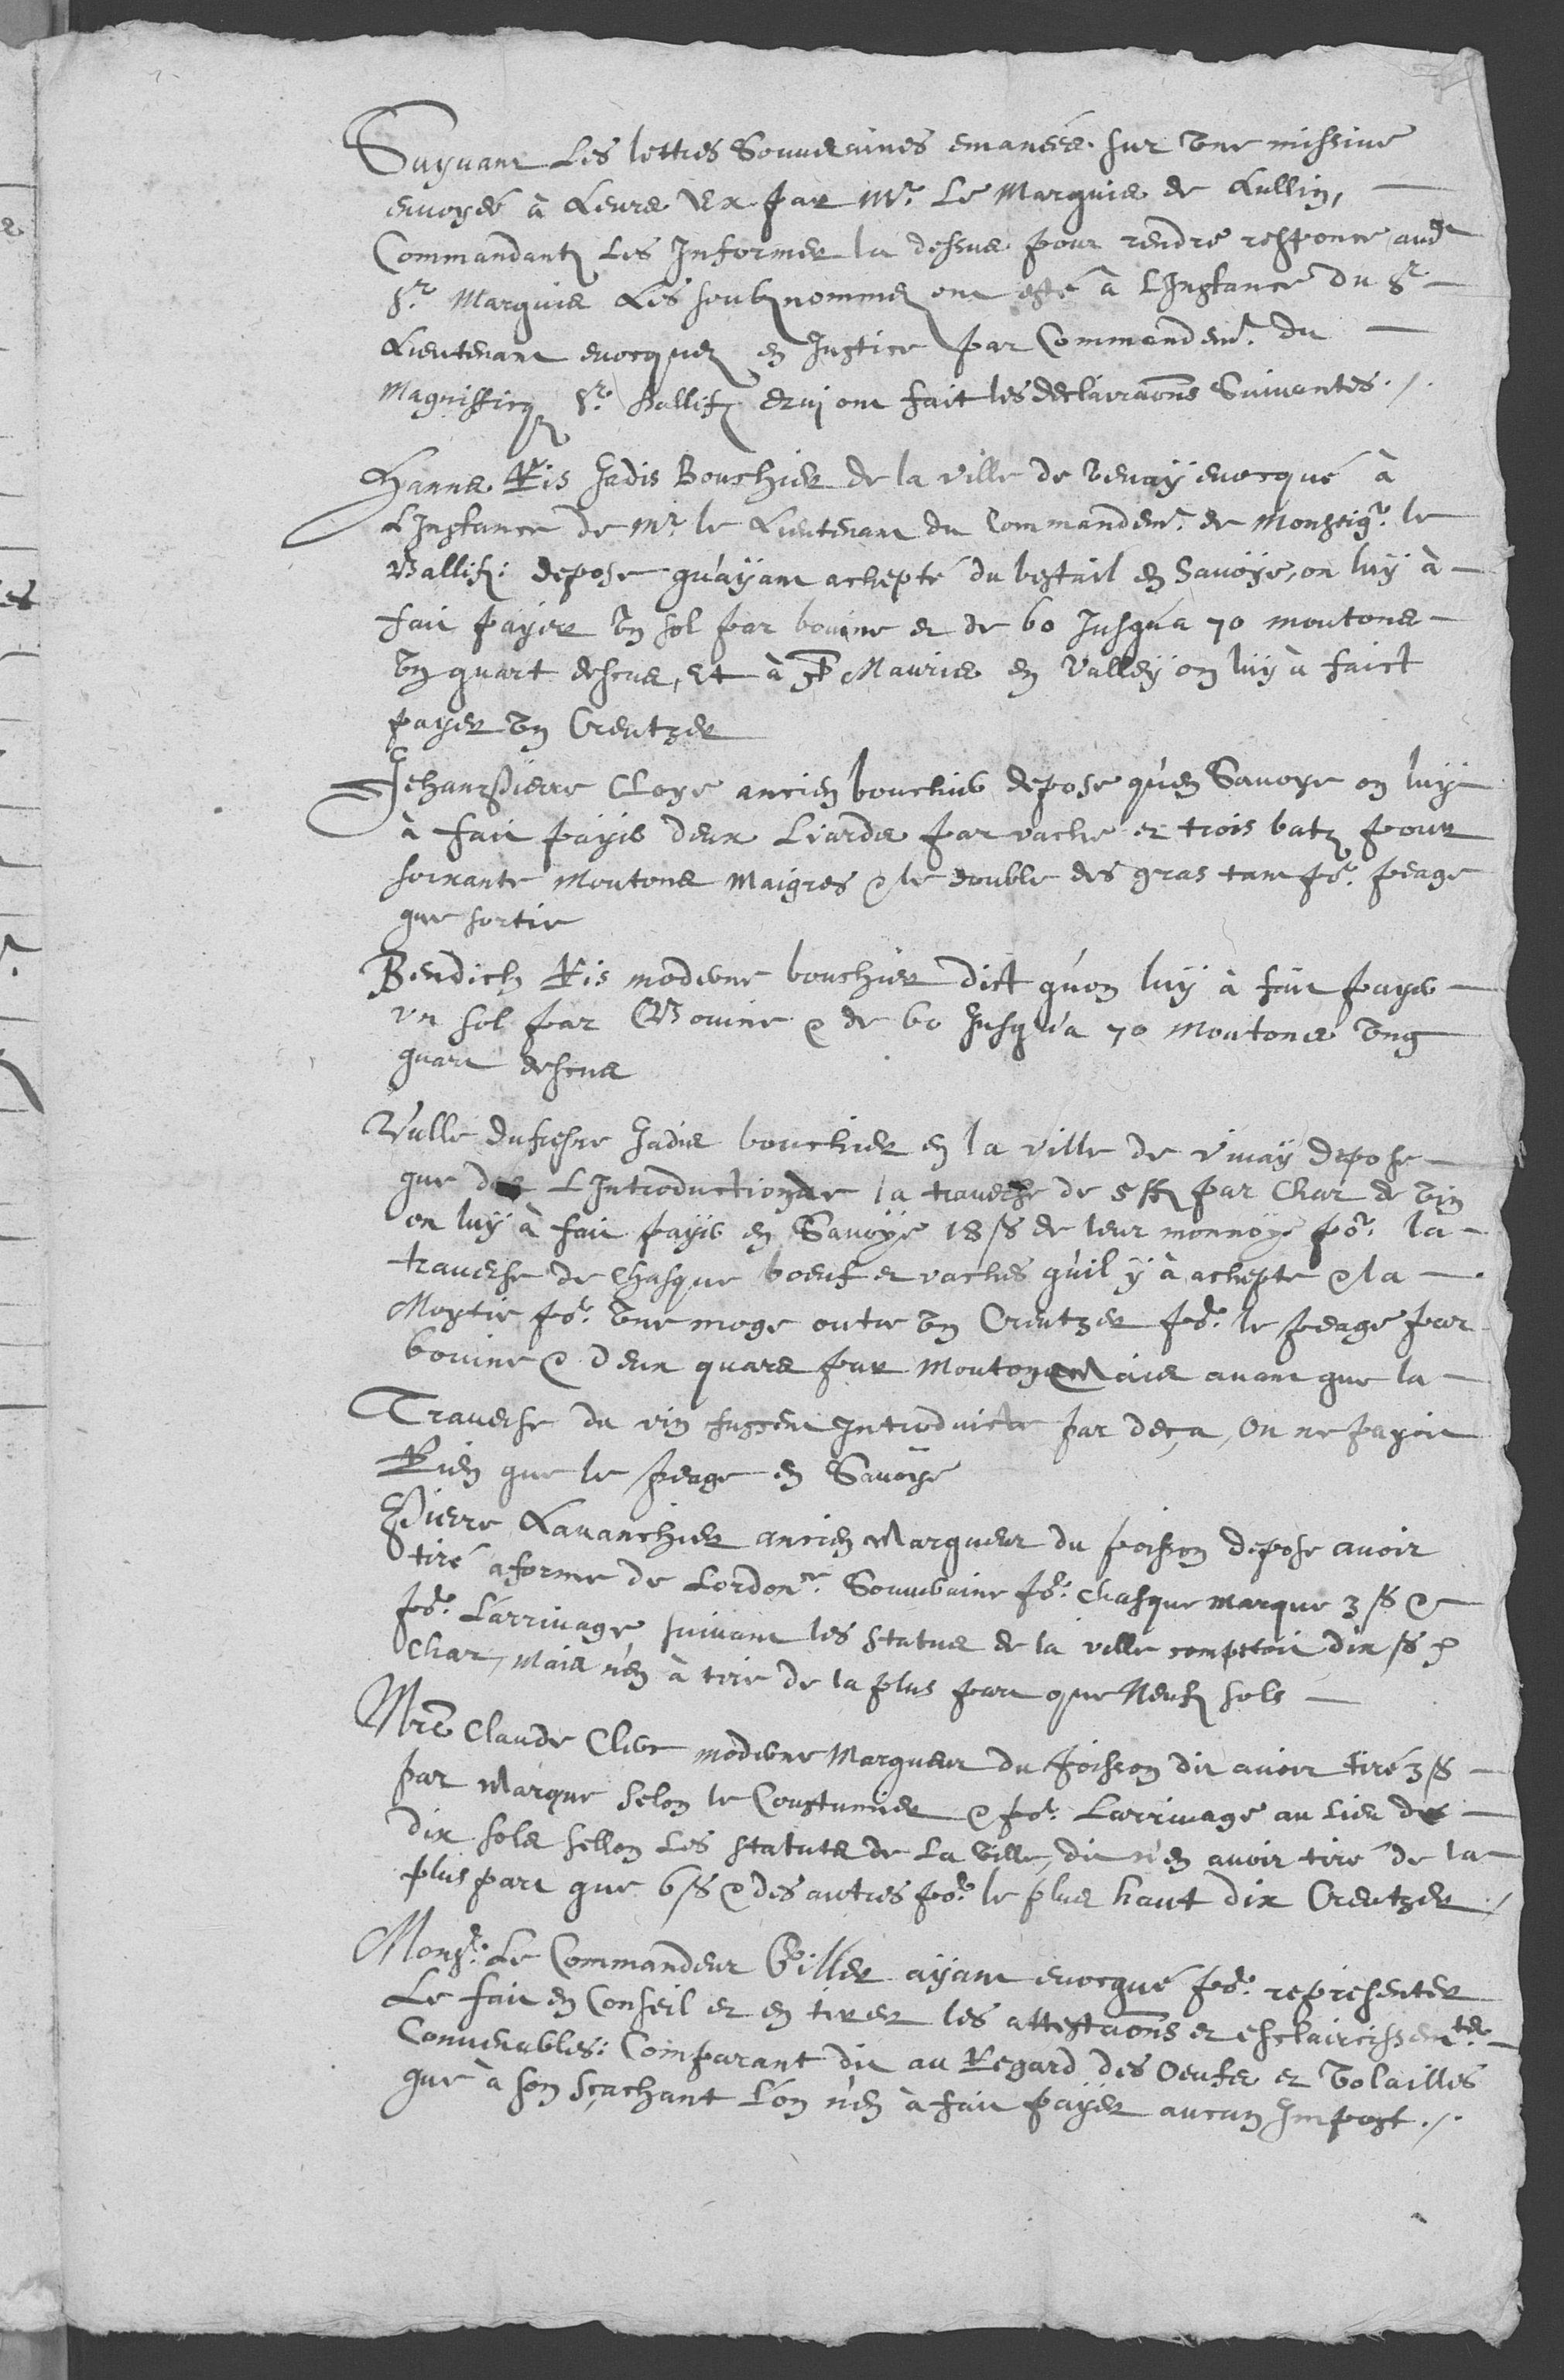 Suyvant Les lettres Souveraines emanées sur une missive
envoyée à Leurs Ex par Mr. Le Marquis de Lullin,
Commandantz Les Informer la dessus pour rendre responce aud
Sr. Marquis Les soubznommez ont esté à L'Instance du Sr
Lieutenant evocquez en Justice par Commandemt. du
Magnifficq Sr. Ballifz et ont fait les declairaons Suivantes ./.
Hanns Ris Jadis Bouchier de la ville de Vevay evocqué à
L'Instance de Mr le Lieutenant du Commandemt. de Monseigr. le
Ballifz: depose qu'ayant achepté du bestail en Savoye, on luy à
fait payer un sol par bovine et de 60 Jusqu'a 70 moutons
un quart descus, Et à St Mauris en Valley on luy à faict
payer un Creutzer
Jehanpierre Cloye ancien bouchier depose qu'en Savoye on luy
à fait payer deux Liards par vache et trois batz pour
soixante moutons Maigres & le double des gras tant pr. peage
que sortie
Bendich Ris moderne bouchier dict qu'on luy à fait payer
un sol par Bovine & de 60 Jusqu'a 70 Moutons ung
quart descus
Ulle dufresne Jadis bouchier en la ville de Vivay depose
que L'Introduction de la traverse de 5 ff par Char de vin
on luy à fait payer en Savoye 18 ß de leur monnoye pr. la
traverse de Chasque boeuf et vaches qu'il y à achepte & la
Moytie pr. une moge outre un Creutzer pr. le peage par
bovine & deux quars par Mouton Mais avant que la
Traverse du vin fussent Introduicte par deça, on ne payoit
Rien que le peage en Savoye
Pierre Lavanchier ancien Marqueur du poisson depose avoir
tiré a forme de Lordonce. Souveraine pr. Chasque marque 3 ß &
pr. L'arrivage, suivant les statuts de la ville comptoit dix ß p
Char, Mais n'en à tire de la plus part que Neufz sols
Mre Claude Clerc moderne Marqueur du poisson dit avoir tiré 3 ß
par Marque selon le Coustumier & pr. Larrivage au lieu de
dix sols sellon Les statuts de La ville, dit n'en avoir tiré de la
plus part que 6 ß & des autres pr. le plus haut dix Creutzer ./.
Monsr. Le Commandeur Giller ayant evocqué pr. representer
Le fait en Conseil et en tirer les attestaons et esclaircissemts.
Convenables: Comparant dit au Regard des Oeufs et Volailles
que à son sçachant L'on n'en à fait payer aucun Impost ./.